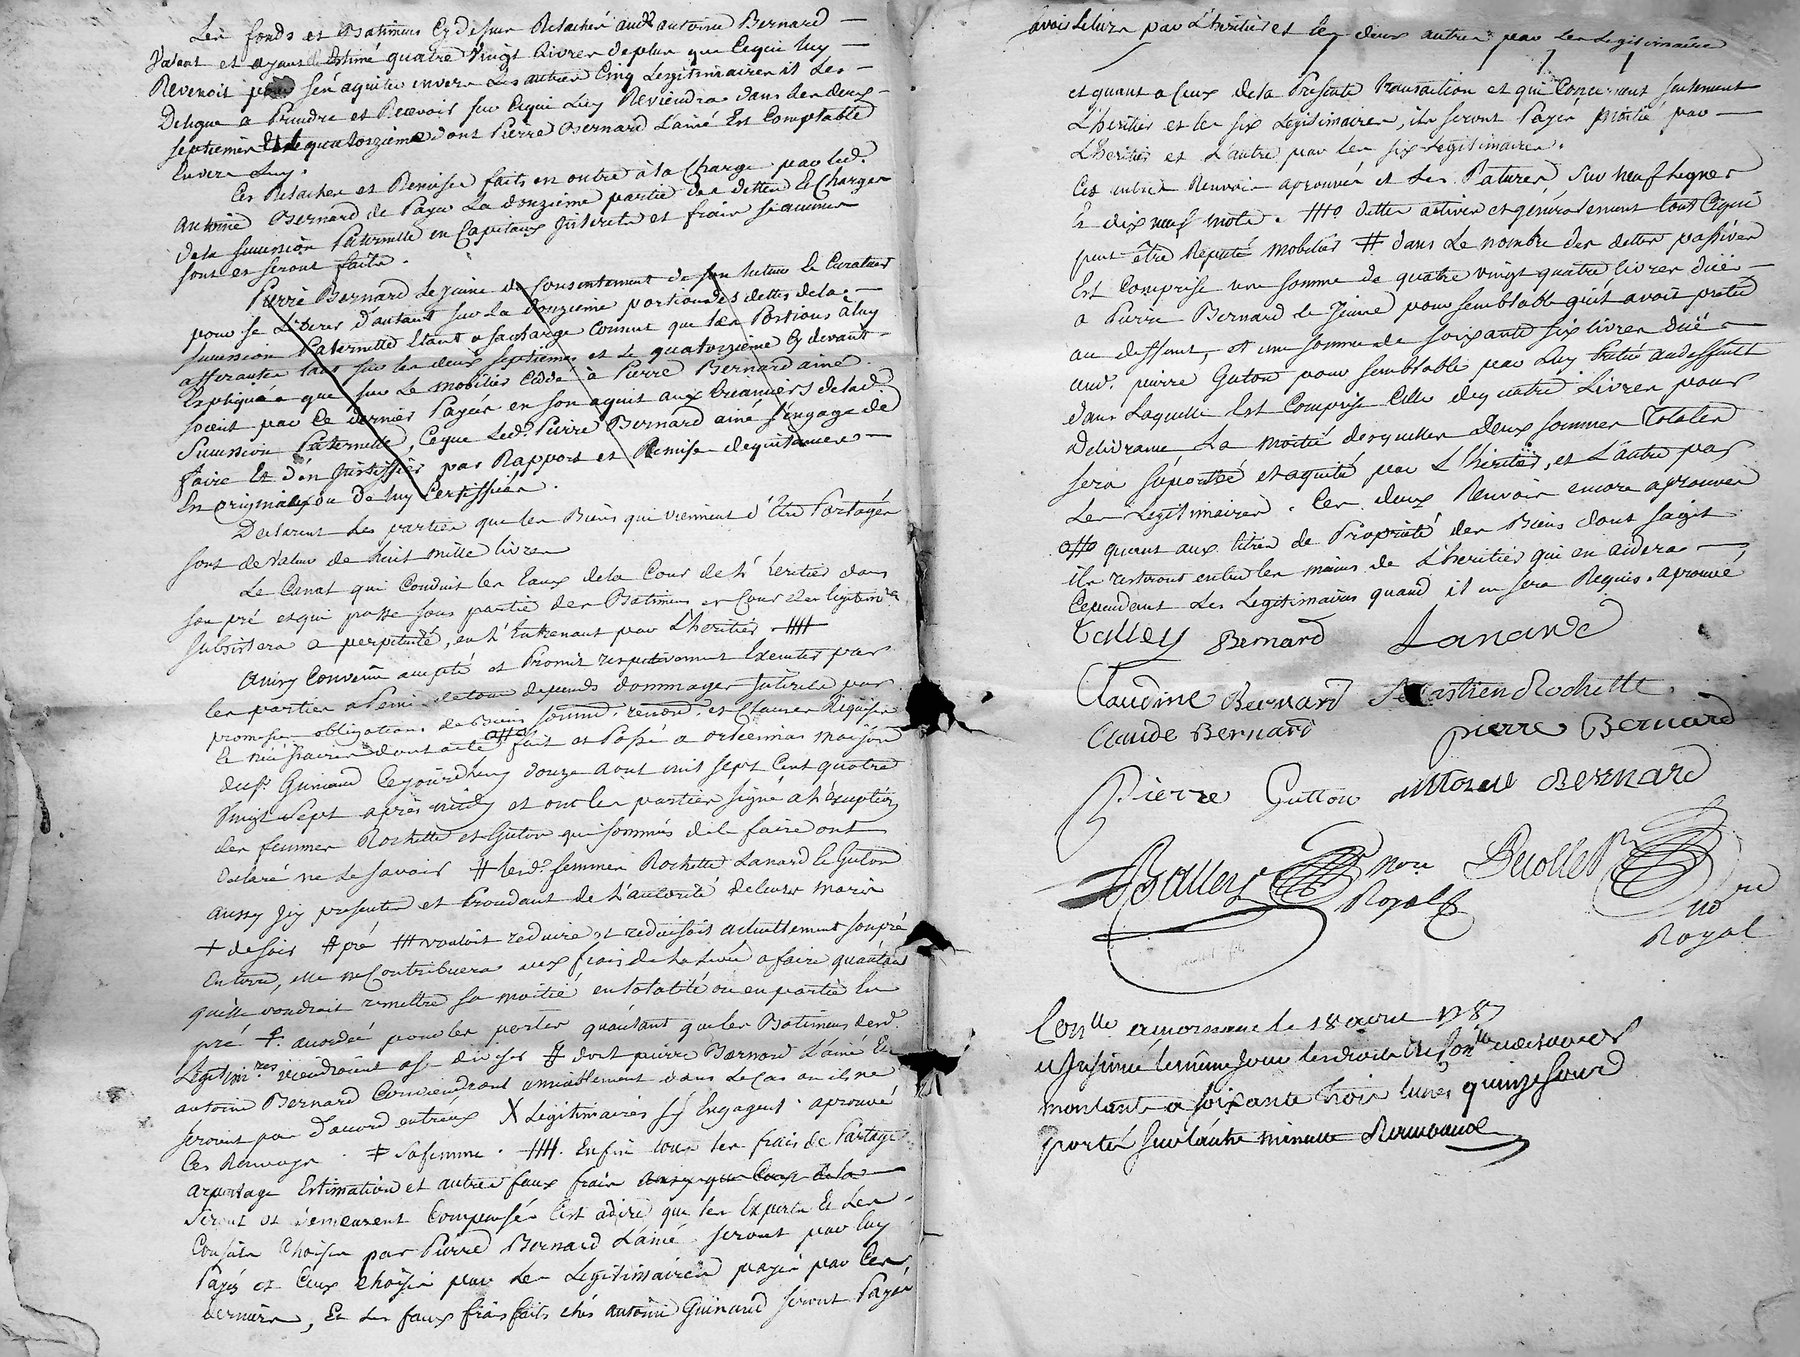 Les fonds et Batimens Cy dessus Relachés aud. antoine Bernard
Valent et ayant Estimé quatre Vingt livres de plus que Cequi luy
Revenoit pour sén aquiter envers les autres Cinq Legitimaires il les
Delegue a Prendre et Recevoir sur Cequi Luy Reviendra dans les deux
septiemes et le quatorzieme dont Pierre Bernard L'ainé Est Comptable
Envers Luy.
Ces Relaches et Remises faits en outre à la Charge par led.
antoine Bernard de Payer La douzieme partie des dettes et Charges
dela sucession Paternelle en Capitaux Interets et frais si aucuns
sont et seront faits.
Pierre Bernard Le jeune du Consentement de son tuteur et Curateur
pour se Liberer d'autant sur La douzieme portion des dettes dela
sucession Paternelle Etant a sa charge Consent que les Portions à luy
afferantes tant sur les deux septiemes et Le quatorzieme Cy devant
Expliquées que sur Le mobilier Cédé à Pierre Bernard ainé
soient par Ce dernier Payées en son aquit aux Creanciers de lad.
Sucession Paternelle, Ceque Led. Pierre Bernard ainé s'engage de
faire Et d'en justifier par Rapport et Remise de quitances
En originaux ou de luy Certiffiées.
Declarent Les parties que les Biens qui viennent d'Etre Partagés
sont de valeur de huit mille livres
Le Canal qui Conduit les Eaux dela Cour de L'heritier dans
son pré et qui passe sous partie des Batimens et Cour des legitimres
subsistera a perpetuité, en L'Entretenant par L'heritier. ####
Ainsy Convenu accepté et Promis respectivement Executer par
les parties a Peine de tous depends dommages Interets par
promesses obligations de Biens soumis. renon. et Clauses Requises
et nécessaires dont acte fait et Passé a maison
du sr Guinand Cejourdhuy douze avril mil sept Cent quatre
Vingt sept après midy et ont les parties signé a L'exception
des femmes Rochette et Guton qui sommés de le faire ont
declaré ne le savoir # lesd. femmes Rochette Lanard et Guton
aussy Icy presentes et Procedant de L'autorité de leurs maris
+ de soir # pré ### vouloit reduire et reduisoit actuellement son pré
En terre, elle ne Contribuera aux frais de la levée a faire qu'autant
qu'elle voudroit remettre sa moitié en totalité ou en partie En
pré ‡. accordée pour les porter qu'autant que les Batimens desd.
Legitimres viendroient a se diviser # dont pierre Bernard L'ainé Et
antoine Bernard Conviendront amiablement dans Le Cas ou ils ne
seroient pas D'accord entreux X Legitimaires s'y Engagent. aprouvé
Ces Renvoys. ‡ sa femme. ####. Enfin tous les frais de Partage
arpentage Estimation et autres faux frais ainsy que Ceux de la
seront et demeurent Compensés C'est adire que les Experts Et Les
Conseils Choisis par Pierre Bernard L'ainé seront par luy
Payés et Ceux Choisis par Les Legitimaires payés par Ces
derniers, Et Les faux frais faits chés antoine Guinand seront Payés
avoir Le tiers par L'heritier et les deux autres par Les Legitimaires
et quant a Ceux dela Presente transaction et qui Concernent seulement
L'heritier et les six Legitimaires, ils seront Payés moitié par
L'heritier et L'autre par les six Legitimaires.
Ces autres Renvois aprouvés et Les Ratures sur neuf lignes
Et dix neuf mots. ###° dettes actives et généralement tout Cequi
peut être Reputé mobilier # dans Le nombre des dettes passives
Est Comprise une somme de quatre vingt quatre livres duë
a Pierre Bernard Le Jeune pour semblable qu'il avoit pretée
au deffunt, et une somme de soixante six livres duë
aud. pierre Guton pour semblable par Luy Pretée audeffunt
dans Laquelle Est Comprise Celle de quatre Livres pour
delivrance La moitié desquelles deux sommes Totales
sera suportée et aquitée par L'heritier, et L'autre par
Les Legitimaires. Ces deux Renvois encore aprouvés
o#o quant aux titres de Propriété des Biens dont sagit
ils resteront entre les mains de L'heritier qui en aidera
Cependant Les Legitimaires quand il en sera Requis. aprouvé
Talley Bernard Lanard
Claudine Bernard Sebastien Rochette
Claude Bernard pierre Bernard
Pierre Gutton antoine Bernard
Talley nore Royal
Decollet nre Royal
Conlle a le 18 avril 1787
et Insinué le même jour les droits de Conlle
montants a soixante trois livres quinze sous
portés sur l'autre minutte Rambaud